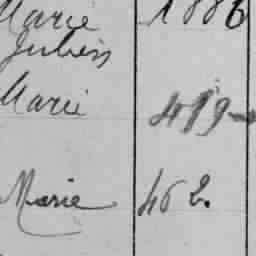 Marie 1886
Julien
Marie 419
Marie 462.